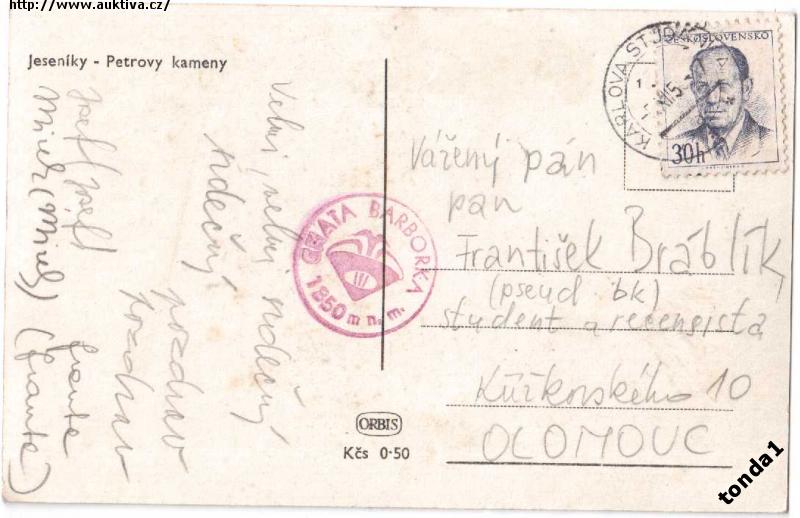 http://www.auktiva.cz/
Jeseníky - Petrovy kameny
Velmi, velmi srdečný
srdečný
pozdrav
pozdrav
Josef Josef
Mirek (Mirek)
Franta
(Franta)
CHATA BARBORKA
1850 m n. m.
ORBIS
Kčs 0·50
KARLOVA STUDÁNKA
ČESKOSLOVENSKO
30h
Vážený pán
pan
František Bráblík
(pseud bk)
student a recensista
Křížkovského 10
OLOMOUC
tonda1